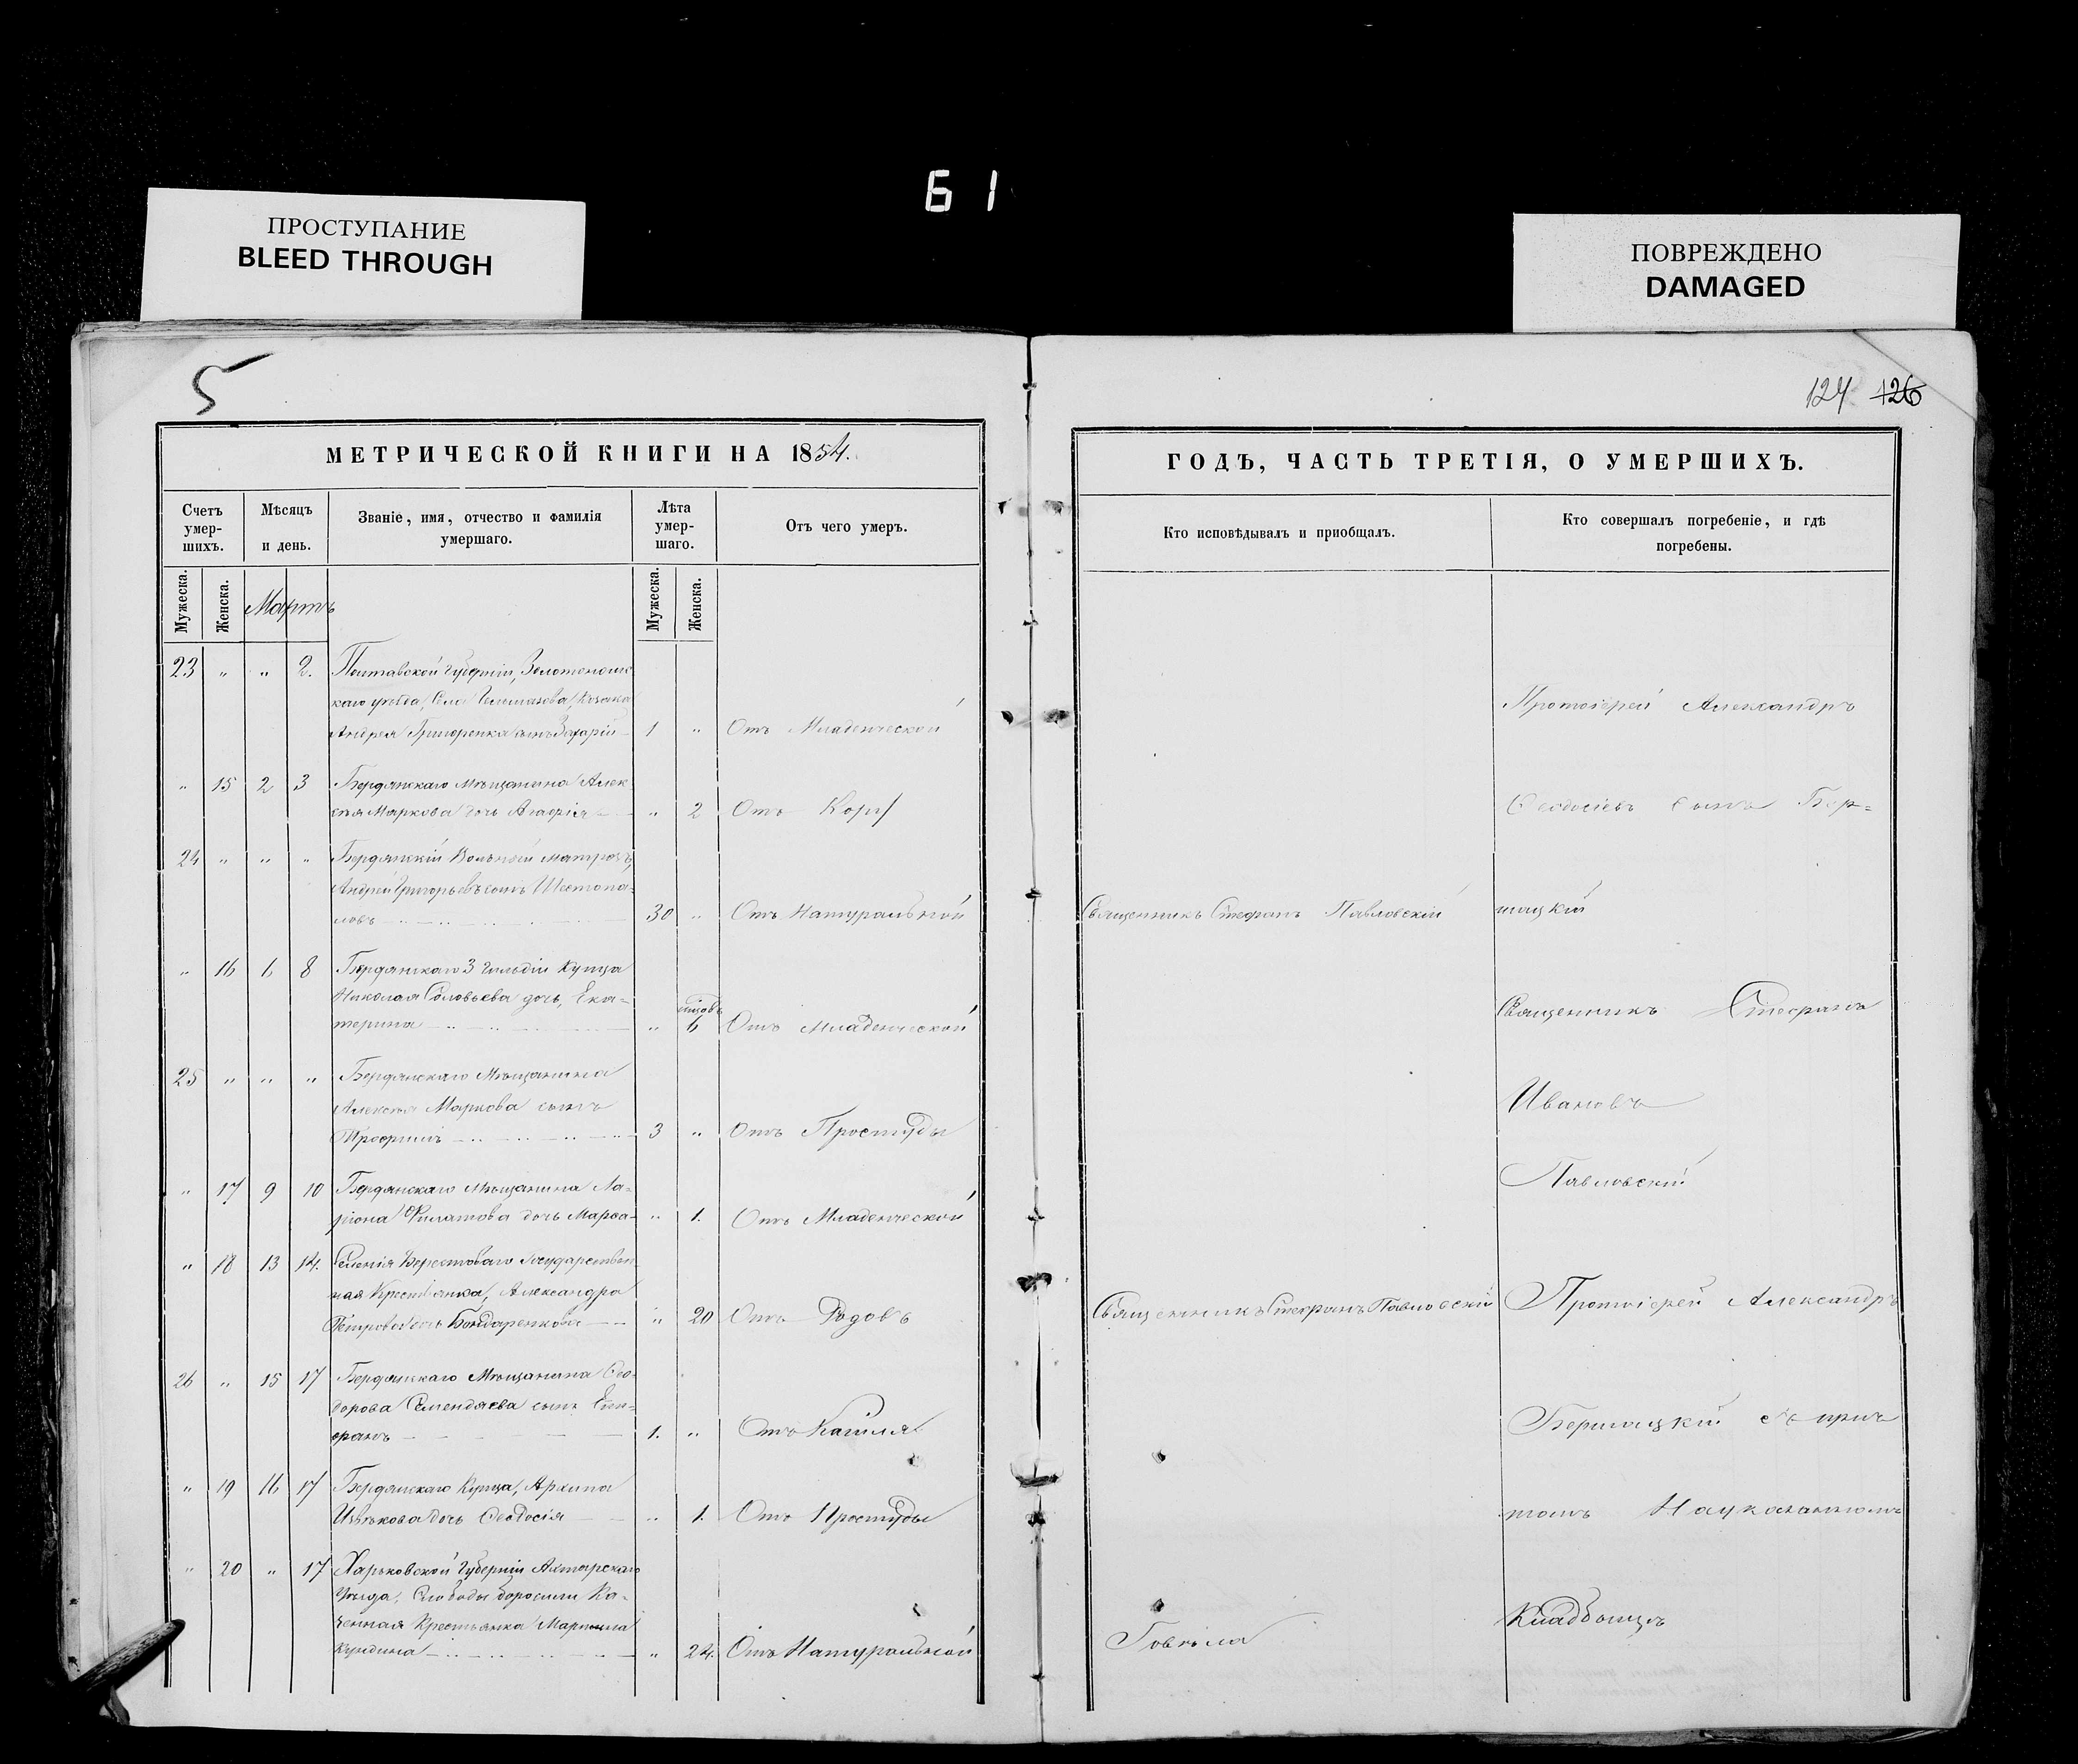 61
ПРОСТУПАНИЕ
BLEED THROUGH
ПОВРЕЖДЕНО
DAMAGED
5
124 126
МЕТРИЧЕСКОЙ КНИГИ НА 1854.
Счетъ умер-шихъ.
Мѣсяцъ и день.
Званіе, имя, отчество и фамилія умершаго.
Лѣта умер-шаго.
Отъ чего умеръ.
Мужеска.
Женска.
Мартъ
Мужеска.
Женска.
23 " " 2. Полтавской Губерніи, Золотонош-
каго уѣзда, Села Гельмязова, Козака
Андрея Григоренка сынъ Захарій 1 " Отъ Младенческой
" 15 2 3 Бердянскаго Мѣщанина Алек-
сѣя Маркова дочь Агафія " 2 Отъ Кори
24 " " " Бердянскій Вольный матрозъ,
Андрей Григорьевъ сынъ Шестопа-
ловъ 30 " Отъ Натуральной
" 16 6 8 Бердянскаго 3 Гильдіи Купца
Николая Соловьева дочь, Ека-
терина " 6 Отъ Младенческой
25 " " " Бердянскаго Мѣщанина
Алексѣя Маркова сынъ
Трофимъ 3 " Отъ Простуды
" 17 9 10 Бердянскаго Мѣщанина Ла-
ріона Филатова дочь Марѳа " 1. Отъ Младенческой
" 18 13 14. Селенія Берестоваго Государствен
ная Крестьянка, Александра
Петрова дочь Бондаренкова " 20 Отъ Родовъ
26 " 15 17 Бердянскаго Мѣщанина Ѳео-
дорова Семендяева сынъ Сте-
фанъ 1. " Отъ Кашля
" 19 16 17 Бердянскаго Купца, Архипа
Цвѣткова дочь Ѳеодосія " 1. Отъ Простуды
" 20 " 17 Харьковской Губерніи Ахтырскаго
Уѣзда, Слободы Боромли Ка-
зенная Крестьянка Марѳина
" 24. Отъ Натуральной
ГОДЪ, ЧАСТЬ ТРЕТІЯ, О УМЕРШИХЪ.
Кто исповѣдывалъ и пріобщалъ.
Кто совершалъ погребеніе, и гдѣ погребены.
Протоіерей Александръ
Ѳеодосіевъ сынъ Бер=
Священникъ Стефанъ Павловскій
шацкій
Священникъ Стефанъ
Ивановъ
Павловскій
Священникъ Стефанъ Павловскій
Протоіерей Александръ
Бершацкій съ прич
томъ На указанномъ
Говѣла
Кладбищѣ